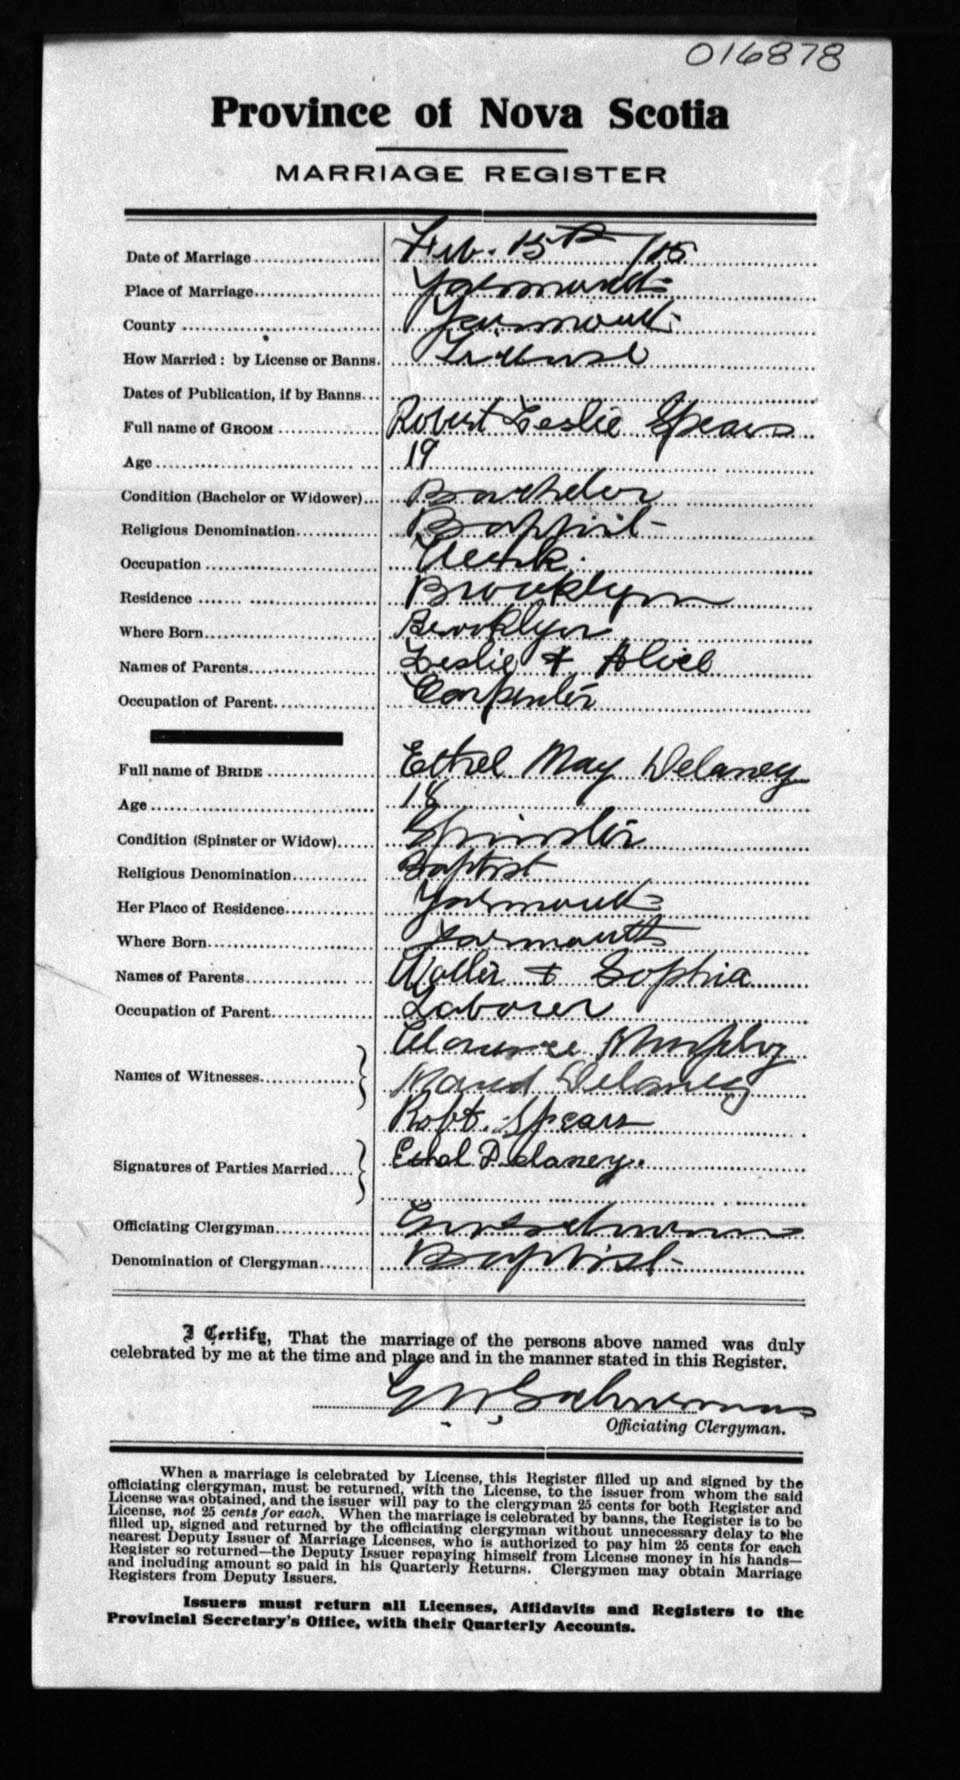 016878
Province of Nova Scotia
MARRIAGE REGISTER
Date of Marriage Feb. 15th /15
Place of Marriage Yarmouth
County Yarmouth
How Married: by License or Banns. License
Dates of Publication, if by Banns
Full name of GROOM Robert Leslie Spears
Age 19
Condition (Bachelor or Widower) Bachelor
Religious Denomination Baptist
Occupation Clerk
Residence Brooklyn
Where Born Brooklyn
Names of Parents Leslie & Alice
Occupation of Parent Carpenter
Full name of BRIDE Ethel May Delaney
Age 18
Condition (Spinster or Widow) Spinster
Religious Denomination Baptist
Her Place of Residence Yarmouth
Where Born Yarmouth
Names of Parents Walter & Sophia
Occupation of Parent Laborer
Clarence Murphy
Names of Witnesses Maud Delaney
Robt. Spears
Signatures of Parties Married Ethal Delaney.
Officiating Clergyman
Denomination of Clergyman Baptist
I Certify, That the marriage of the persons above named was duly
celebrated by me at the time and place and in the manner stated in this Register.
Officiating Clergyman.
When a marriage is celebrated by License, this Register filled up and signed by the
officiating clergyman, must be returned, with the License, to the issuer from whom the said
License was obtained, and the issuer will pay to the clergyman 25 cents for both Register and
License, not 25 cents for each. When the marriage is celebrated by banns, the Register is to be
filled up, signed and returned by the officiating clergyman without unnecessary delay to the
nearest Deputy Issuer of Marriage Licenses, who is authorized to pay him 25 cents for each
Register so returned—the Deputy Issuer repaying himself from License money in his hands—
and including amount so paid in his Quarterly Returns. Clergymen may obtain Marriage
Registers from Deputy Issuers.
Issuers must return all Licenses, Affidavits and Registers to the
Provincial Secretary's Office, with their Quarterly Accounts.